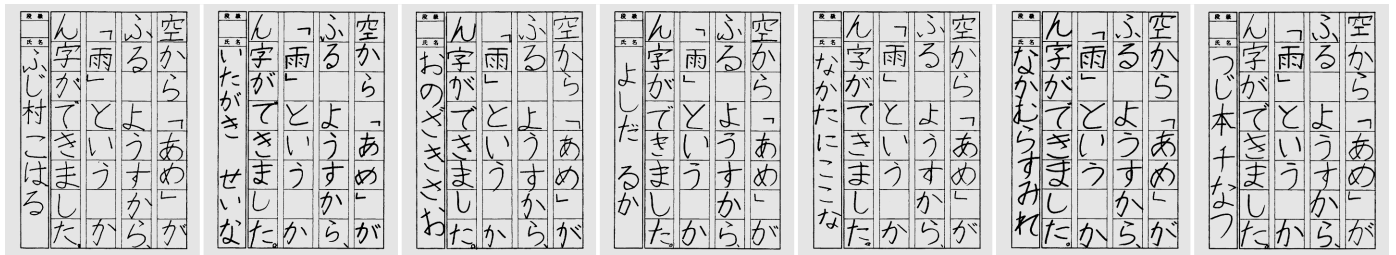 空から「あめ」が
ふる ようすから、
「雨」という か
ん字ができました。
段級
氏名
ふじ村 こはる
空から「あめ」が
ふる ようすから、
「雨」という か
ん字ができました。
段級
氏名
いたがき せいな
空から「あめ」が
ふる ようすから、
「雨」という か
ん字ができました。
段級
氏名
おのざきさお
空から「あめ」が
ふる ようすから、
「雨」という か
ん字ができました。
段級
氏名
よしだ るか
空から「あめ」が
ふる ようすから、
「雨」という か
ん字ができました。
段級
氏名
なかたにここな
空から「あめ」が
ふる ようすから、
「雨」という か
ん字ができました。
段級
氏名
なかむらすみれ
空から「あめ」が
ふる ようすから、
「雨」という か
ん字ができました。
段級
氏名
つじ本 千なつ